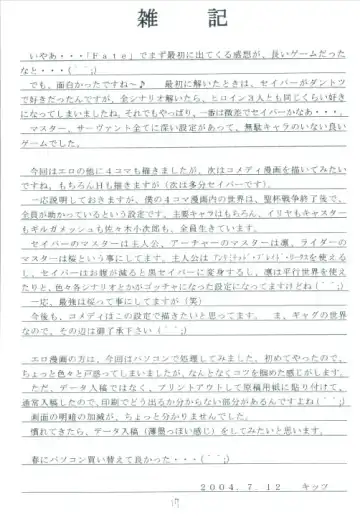 雑　記
いやあ・・・「Ｆａｔｅ」でまず最初に出てくる感想が、長いゲームだった
なと・・・(^^;)
でも、面白かったですね～♪　最初に解いたときは、セイバーがダントツ
で好きだったんですが、全シナリオ解いたら、ヒロイン３人とも同じくらい好き
になってしまいましたね。それでもやっぱり、一番は微差でセイバーかなあ・・・。
マスター、サーヴァント全てに深い設定があって、無駄キャラのいない良い
ゲームでした。
今回はエロの他に４コマも描きましたが、次はコメディ漫画を描いてみたい
ですね。もちろんＨも描きますが（次は多分セイバーです）。
一応説明しておきますが、僕の４コマ漫画内の世界は、聖杯戦争終了後で、
全員が助かっているという設定です。主要キャラはもちろん、イリヤもキャスター
もギルガメッシュも佐々木小次郎も、全員生きています。
セイバーのマスターは主人公、アーチャーのマスターは凛、ライダーの
マスターは桜という事にしてます。主人公はアンリミテッド・ブレイド・ワークスを使える
し、セイバーはお腹が減ると黒セイバーに変身するし、凛は平行世界を使え
たりと、色々各シナリオとかがゴッチャになった設定になってますけどね(^^;)
一応、最強は桜って事にしてますが（笑）
今後も、コメディはこの設定で描きたいと思ってます。　ま、ギャグの世界
なので、その辺は御了承下さい(^^;)
エロ漫画の方は、今回はパソコンで処理してみました。初めてやったので、
ちょっと色々と戸惑ってしまいましたが、なんとなくコツを掴めた感じがします。
ただ、データ入稿ではなく、プリントアウトして原稿用紙に貼り付けて、
通常入稿したので、印刷でどう出るか分からない部分があるんですよね(^^;)
画面の明暗の加減が、ちょっと分かりませんでした。
慣れてきたら、データ入稿（薄墨っぽい感じ）をしてみたいと思います。
春にパソコン買い替えて良かった・・・(^^;)
２００４．７．１２　キッツ
17